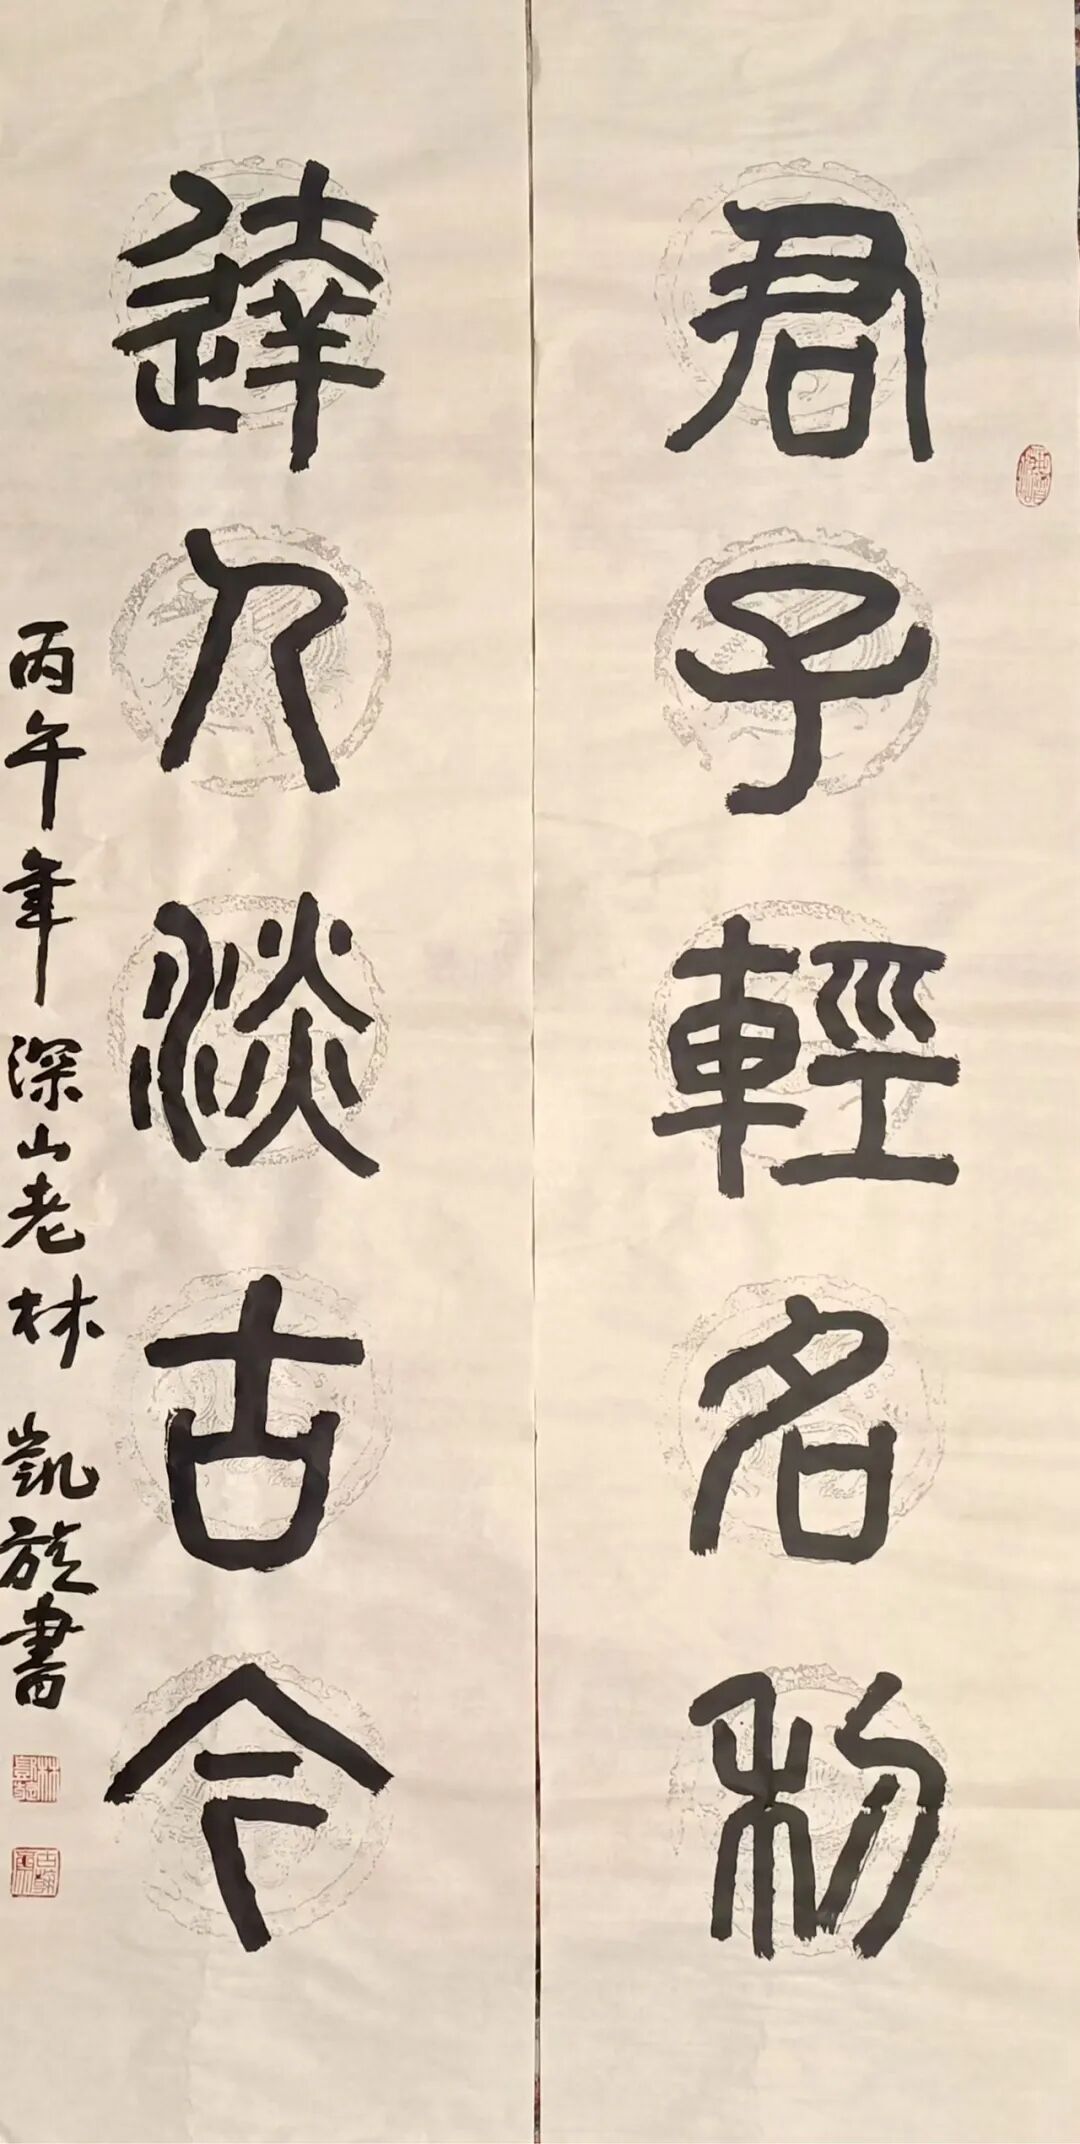 君子輕名利
達人淡古今
丙午年深山老林 凱旋書